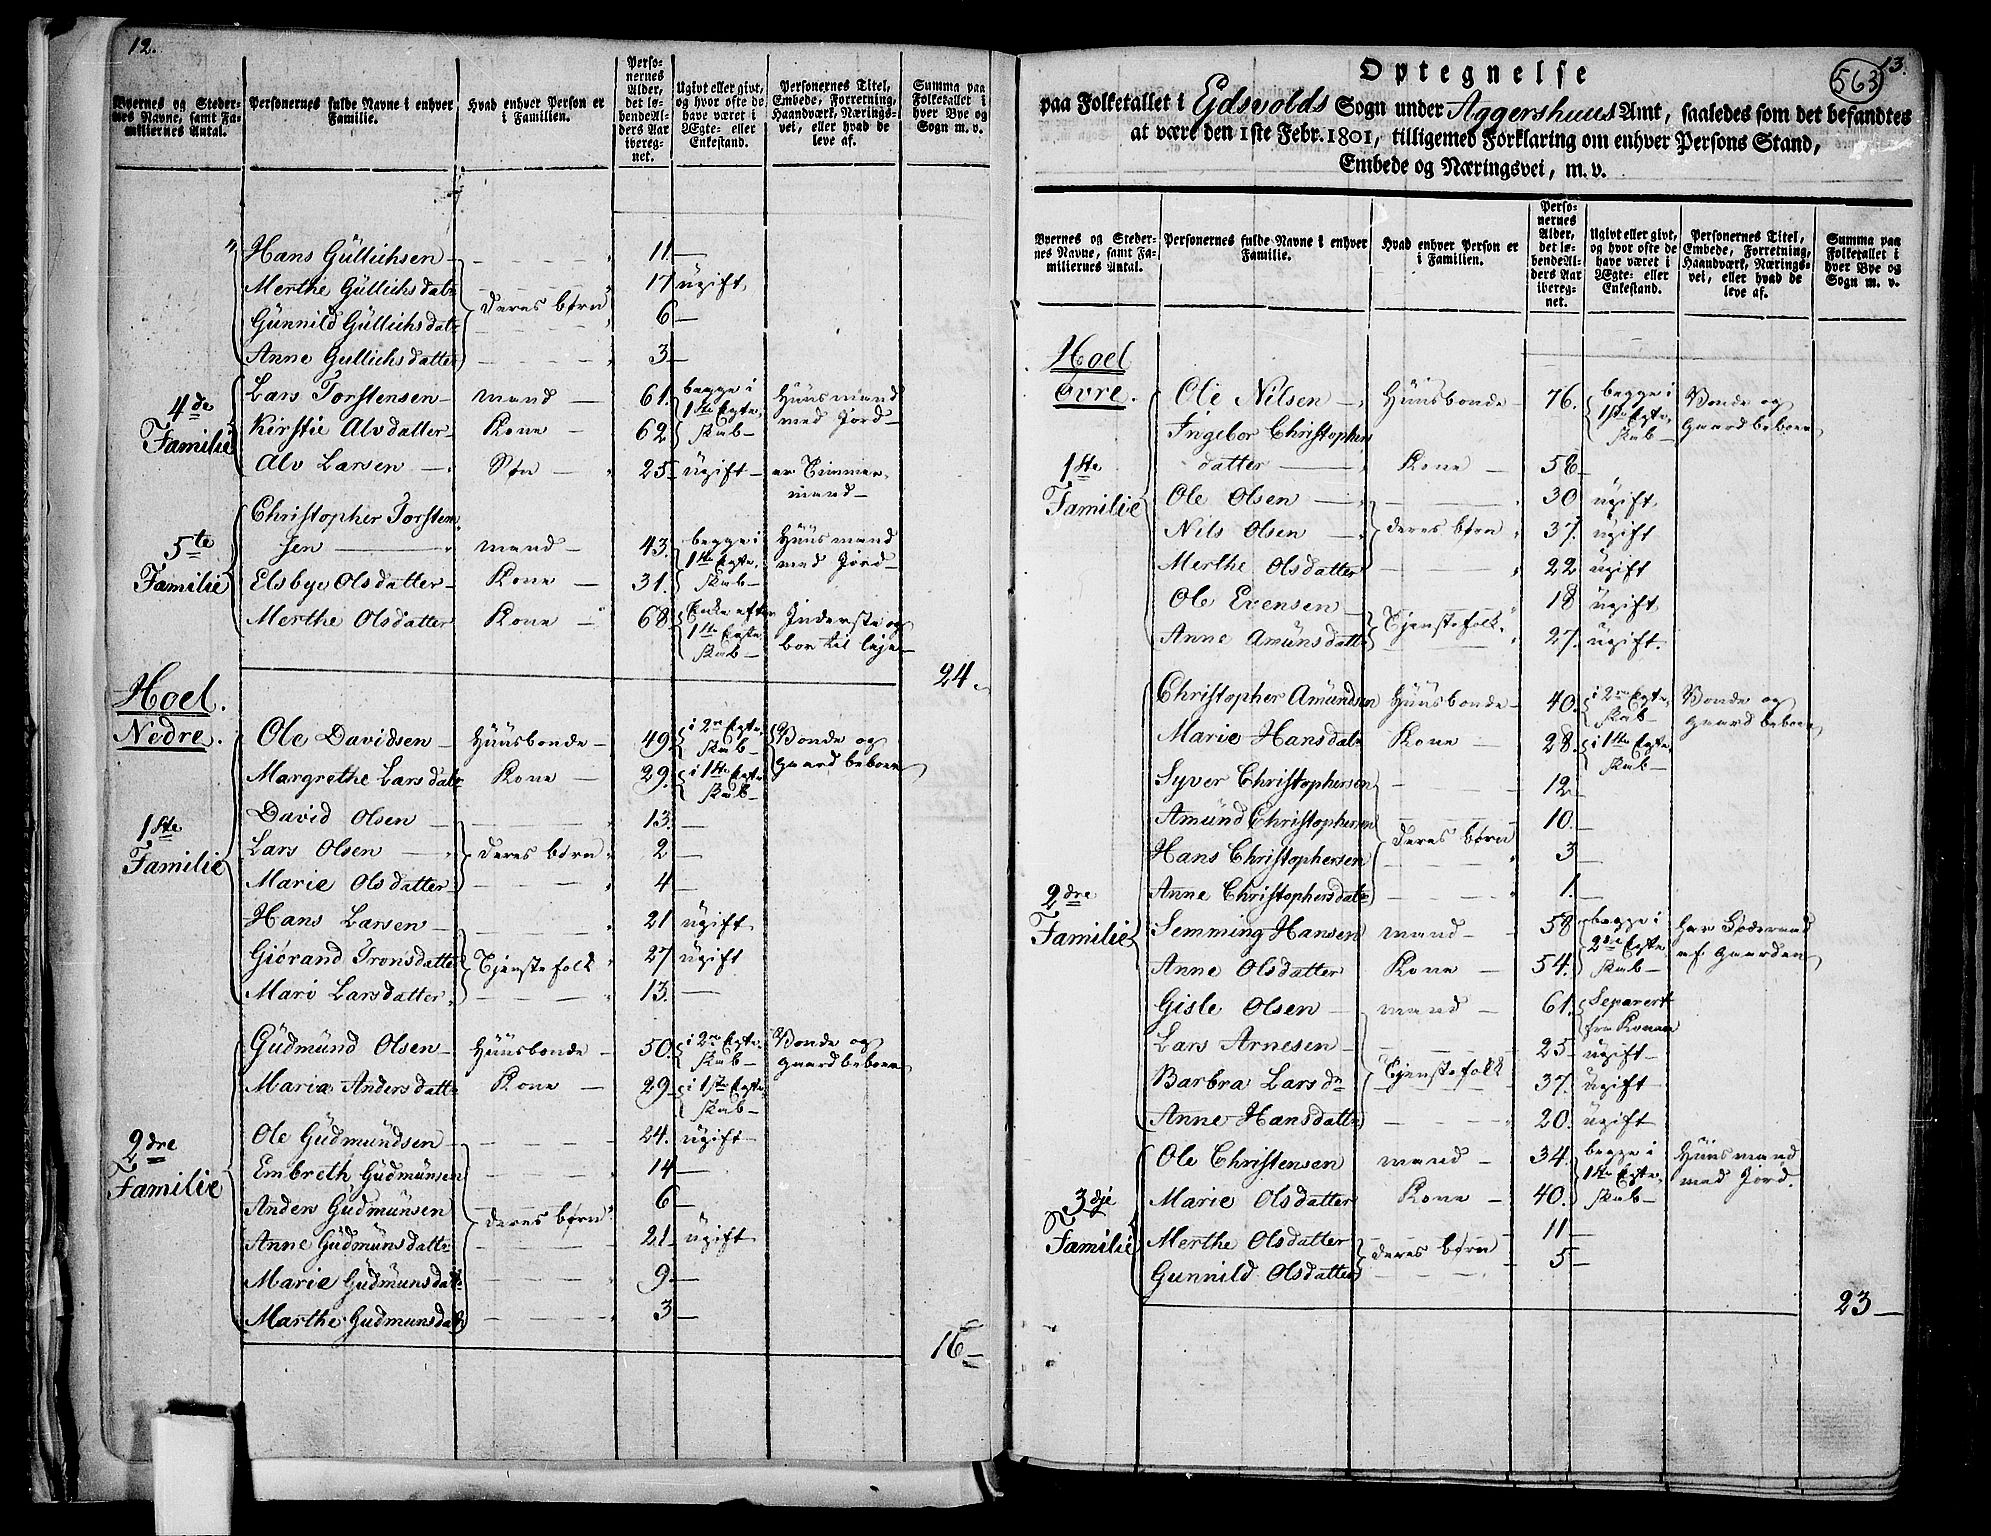 12.
Byernes og Steder-
nes Navne, samt Fa-
miliernes Antal.
Personernes fulde Navne i enhver
Familie.
Hvad enhver Person er
i Familien.
Perso-
nernes
Alder,
det lø-
bende Al-
ders Aar
iberegnet.
Ugivt eller givt,
og hvor ofte de
have været i
Ægte- eller
Enkestand.
Personernes Titel,
Embede, Forretning,
Haandværk, Nærings-
vei, eller hvad de
leve af.
Summa paa
Folketallet i
hver Bye og
Sogn m. v.
Hans Güllichsen 11 —
Merthe Güllichsdatr 17 ugift
Günnild Güllichsdatr deres børn 6 —
Anne Gullichsdatter 3 —
4de Familie
Lars Torstensen mand 61. begge i 1ste Egteskab Huusmand med Jord
Kirstie Alvdatter Kone 62
Alv Larsen Søn 25 ugift er Timmermand
5te Familie
Christopher Torstensen mand 43. begge i 1ste Egteskab Huusmand med Jord
Elsbye Olsdatter Kone 31.
Merthe Olsdatter Kone 68 Enke efter 1ste Egteskab Inderste og bor til leje
24.
Hoel.
Nedre.
1ste Familie
Ole Davidsen Huusbonde 49. i 2n Egteskab Bonde og gaardbeboer
Margrethe Larsdatr Kone 29. i 1ste Egteskab
David Olsen 13. —
Lars Olsen deres børn 2 —
Marie Olsdatter 4 —
Hans Larsen 21 ugift
Giørand Tronsdatter Tjenstefolk 27 ugift
Mari Larsdatter 13. —
2dre Familie
Gudmünd Olsen Huusbonde 50. i 2n Egteskab Bonde og gaardbeboer
Maria Andersdattr Kone 29 i 1ste Egteskab
Ole Güdmündsen 24. ugift
Embreth Güdmünsen 14 —
Anders Güdmünsen deres børn 6 —
Anne Güdmünsdattr 21 ugift
Marie Güdmunsdatr 9 —
Marthe Gudmunsdatr 3 —
16
13.
563
Optegnelse
paa Folketallet i Eidsvolds Sogn under Aggershuus Amt, saaledes som det befandtes
at være den 1ste Febr. 1801, tilligemed Forklaring om enhver Persons Stand,
Embede og Næringsvei, m. v.
Byernes og Steder-
nes Navne, samt Fa-
miliernes Antal.
Personernes fulde Navne i enhver
Familie.
Hvad enhver Person er
i Familien.
Perso-
nernes
Alder,
det lø-
bende Al-
ders Aar
iberegnet.
Ugivt eller givt,
og hvor ofte de
have været i
Ægte- eller
Enkestand.
Personernes Titel,
Embede, Forretning,
Haandværk, Nærings-
vei, eller hvad de
leve af.
Summa paa
Folketallet i
hver Bye og
Sogn m. v.
Hoel
Øvre.
1ste Familie
Ole Nilsen Huusbonde 76. begge i 1ste Egteskab Bonde og gaardbeboer
Ingebor Christophersdatter Kone 58
Ole Olsen 30 ugift
Nils Olsen deres børn 37. ugift
Merthe Olsdatter 22 ugift
Ole Evensen Tjenstefolk 18 ugift
Anne Amünsdattr 27. ugift.
2dre Familie
Christopher Amundsen Huusbonde 40. i 2n Egteskab Bonde og gaardbeboer
Marie Hansdatr Kone 28. i 1ste Egteskab
Syver Christophersen 12 —
Amünd Christophersen 10. —
Hans Christophersen deres børn 3 —
Anne Christophersdatr 1. —
Semming Hansen mand 58 begge i 2det Egteskab har Føderaad af gaarden
Anne Olsdatter Kone 54.
Gisle Olsen mand 61. Separert fra Konen
Lars Arnesen 25 ugift
Barbra Larsdr Tjenstefolk 37. ugift
Anne Hansdattr 20. ugift
3dje Familie
Ole Christensen mand 34. begge i 1ste Egteskab Huusmand med Jord.
Marie Olsdatter Kone 40.
Merthe Olsdatter deres børn 11 —
Gunnild Olsdatter 5 —
23